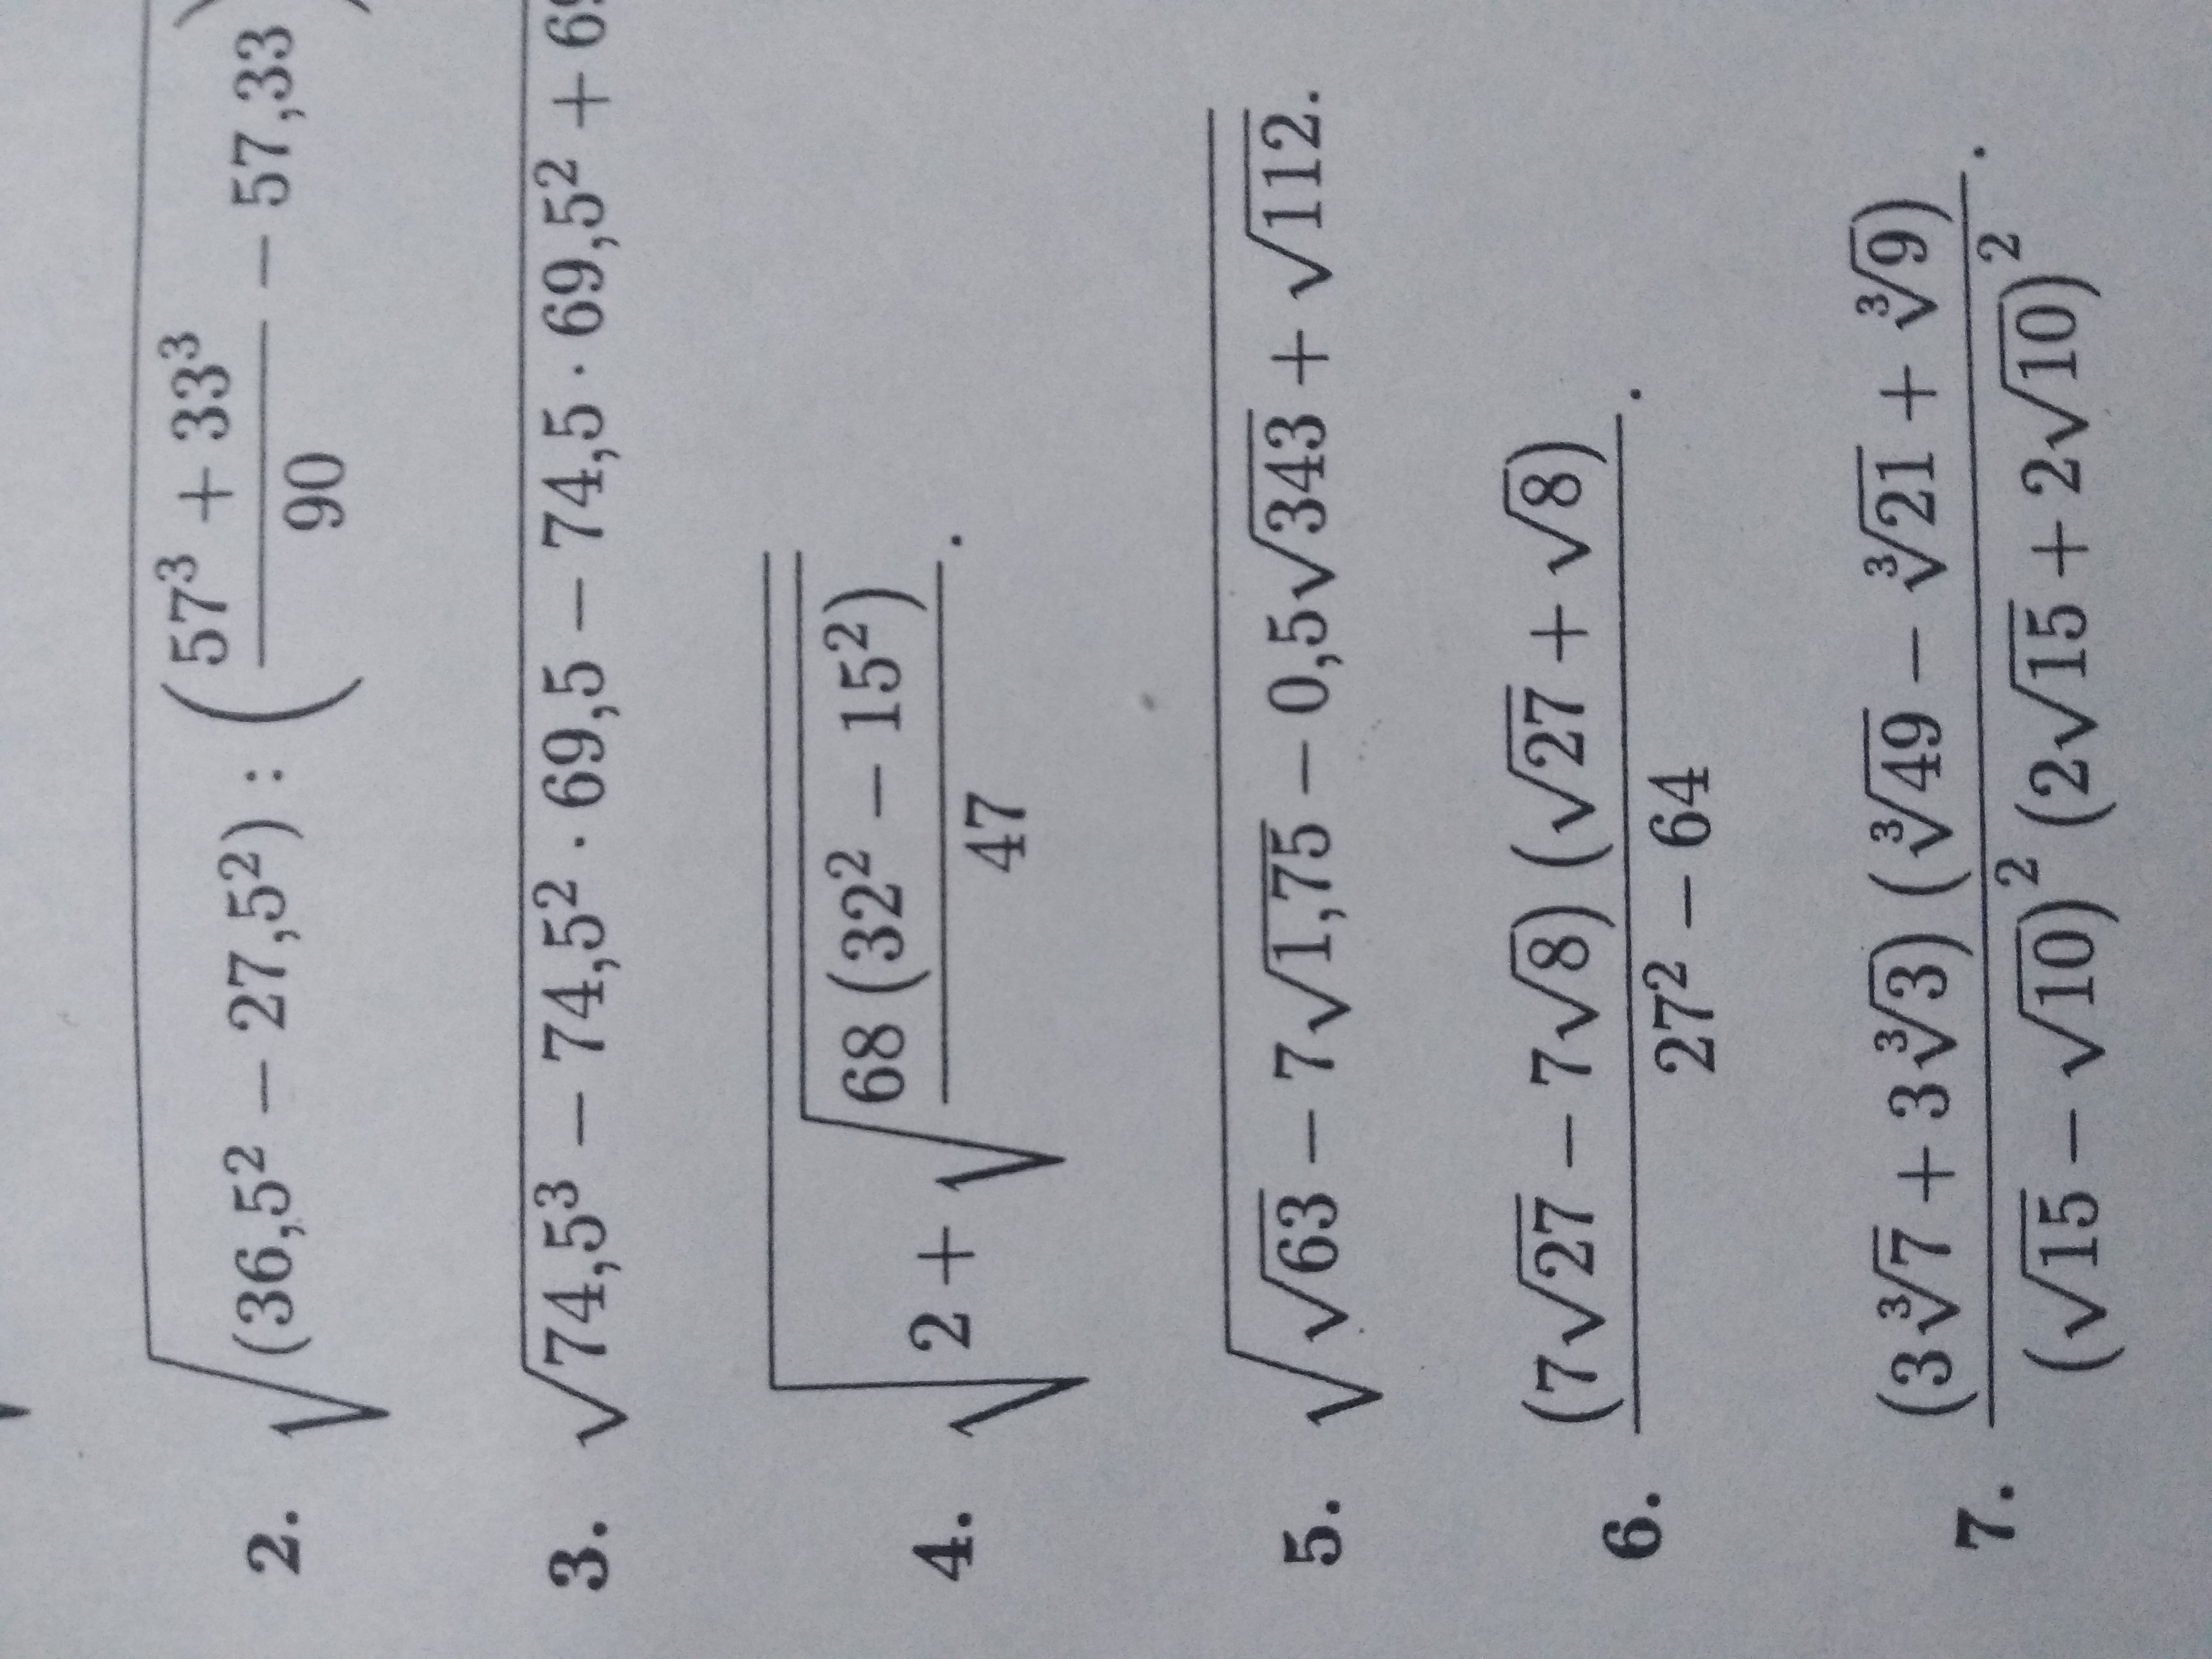 2. √((36,5² − 27,5²) : ((57³ + 33³)/90 − 57,33
3. √(74,5³ − 74,5² · 69,5 − 74,5 · 69,5² + 69
4. √(2 + √(68 (32² − 15²)/47)).
5. √(√63 − 7√1,75 − 0,5√343 + √112).
6. (7√27 − 7√8) (√27 + √8)/(27² − 64).
7. (3∛7 + 3∛3) (∛49 − ∛21 + ∛9)/((√15 − √10)² (2√15 + 2√10)²).